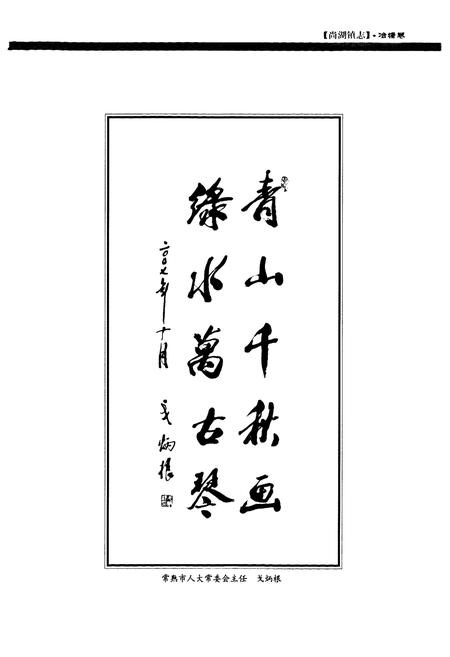 【尚湖镇志】·冶塘卷
青山千秋画
绿水萬古琴
二〇〇七年十月
戈炳根
常熟市人大常委会主任 戈炳根